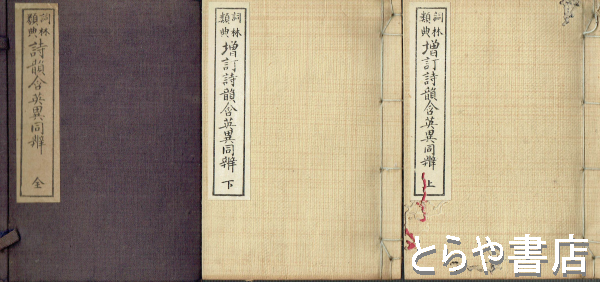 詞林
類典
詩韻含英異同辨
全
詞林
類典
増訂詩韻含英異同辨
下
詞林
類典
増訂詩韻含英異同辨
上
とらや書店